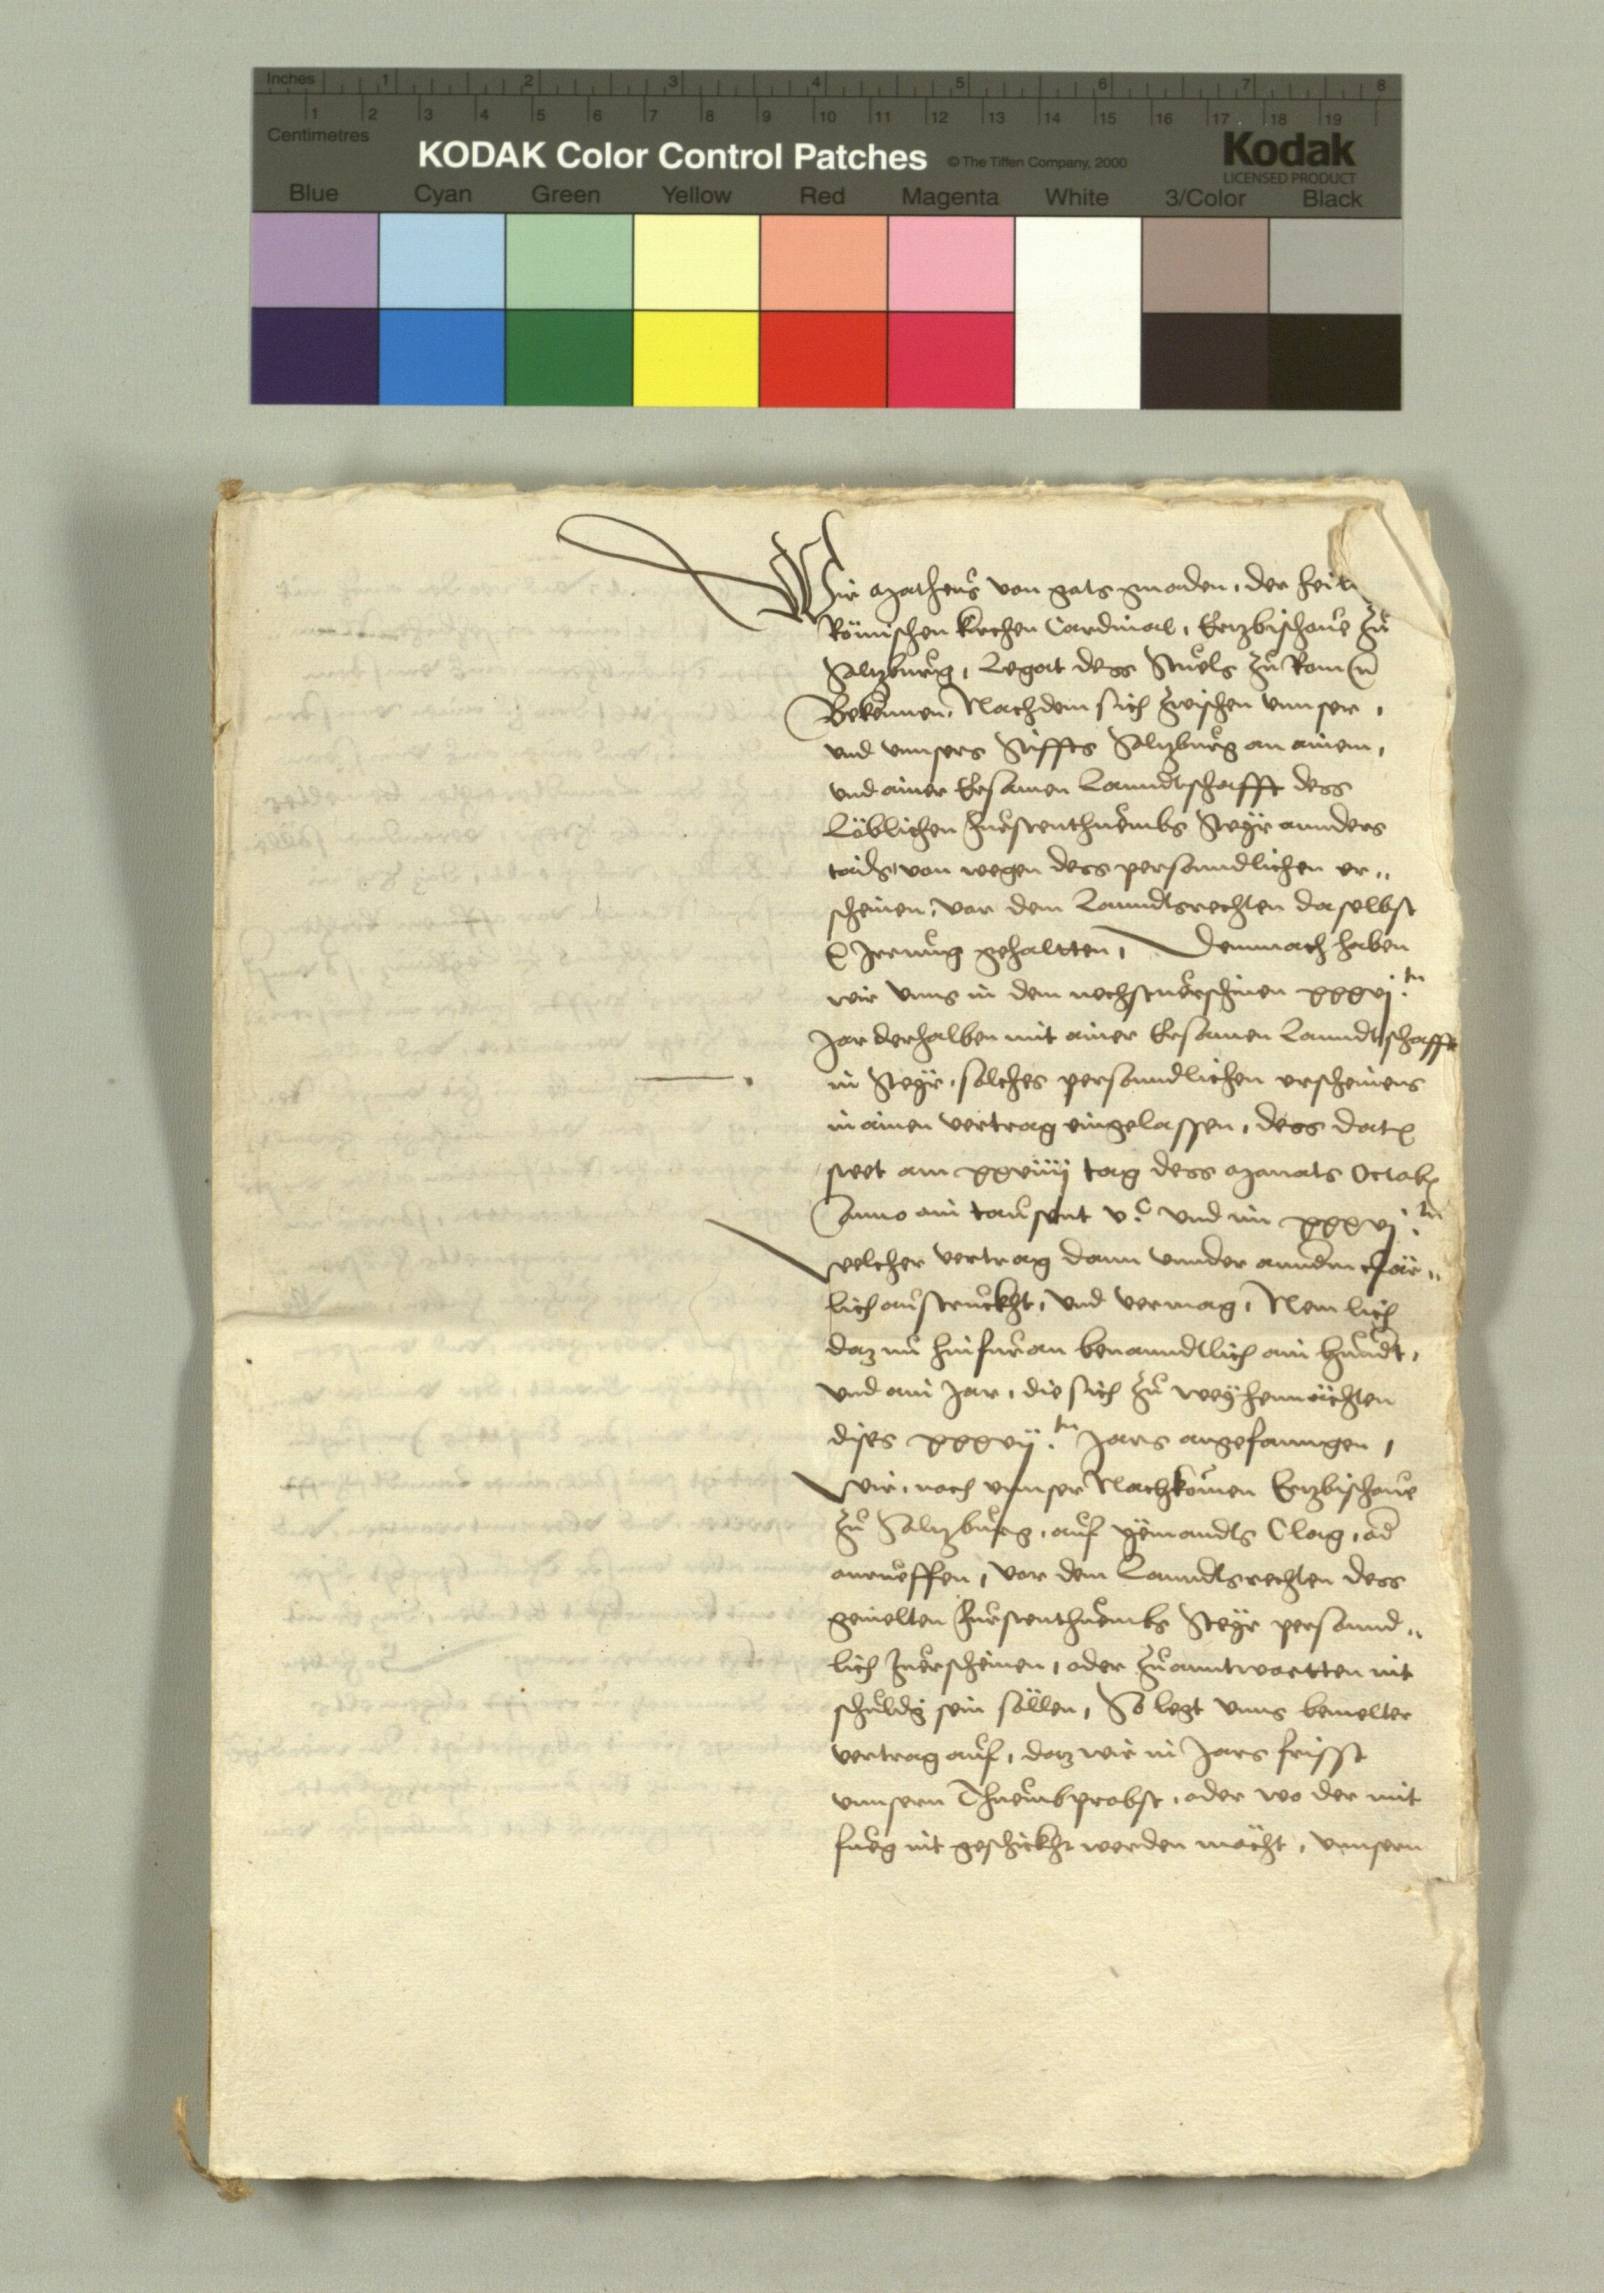 Inches 1 2 3 4 5 6 7 8
1 2 3 4 5 6 7 8 9 10 11 12 13 14 15 16 17 18 19
Centimetres
KODAK Color Control Patches © The Tiffen Company, 2000 Kodak
LICENSED PRODUCT
Blue Cyan Green Yellow Red Magenta White 3/Color Black
Wir Matheus von gots gnaden, der heil
Römischen kirchen Cardinal, Ertzbischove zu
Saltzburg, Legat dess Stuels zu Rom
Bekennen, Nachdem sich zwischen unnser,
und unnsers Stiffts Saltzburg an ainem,
und ainer Ersamen Lanndtschafft dess
Löblichen Fürstenthumbs Steyr annders
tails, von wegen dess personndlichen er„
scheinen, vor dem Lanndtsrechten daselbst
Irrung gehaltten, Demnach haben
wir unns in dem nechstverschinen xxxvj.tn
Jar derhalben mit ainer Ersamen Lanndtschafft
in Steyr, solches personndlichen erscheinens
in ainen vertrag eingelassen, dess dat
steet am xxviiij tag dess Monats Octob
Anno ain tausent v.c und im xxxvj.tn
welcher vertrag dann unnder anndern clär„
lich ausstruckht, und vermag, Nemlich
daz nu hinfuran benanndtlich ain hundt,
und ain Jar, die sich zu weyhennächten
dises xxxvij.tn Jars angefanngen,
wir, noch unnser Nachkomen Ertzbischove
zu Saltzburg, auf yemandts Clag, od
anrueffen, vor dem Lanndtsrechten dess
gemelten Fürstenthumbs Steyr personnd„
lich zuerscheinen, oder zuanntwortten nit
schuldig sein söllen, So legt unns bemelter
vertrag auf, daz wir in Jars frisst
unnsern Thumbprobst, oder wo der mit
fueg nit geschickht werden möcht, unnsern